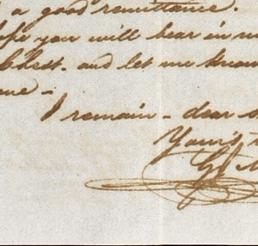 a good remittance.
you will hear in
and let me know
I remain - dear
Yours